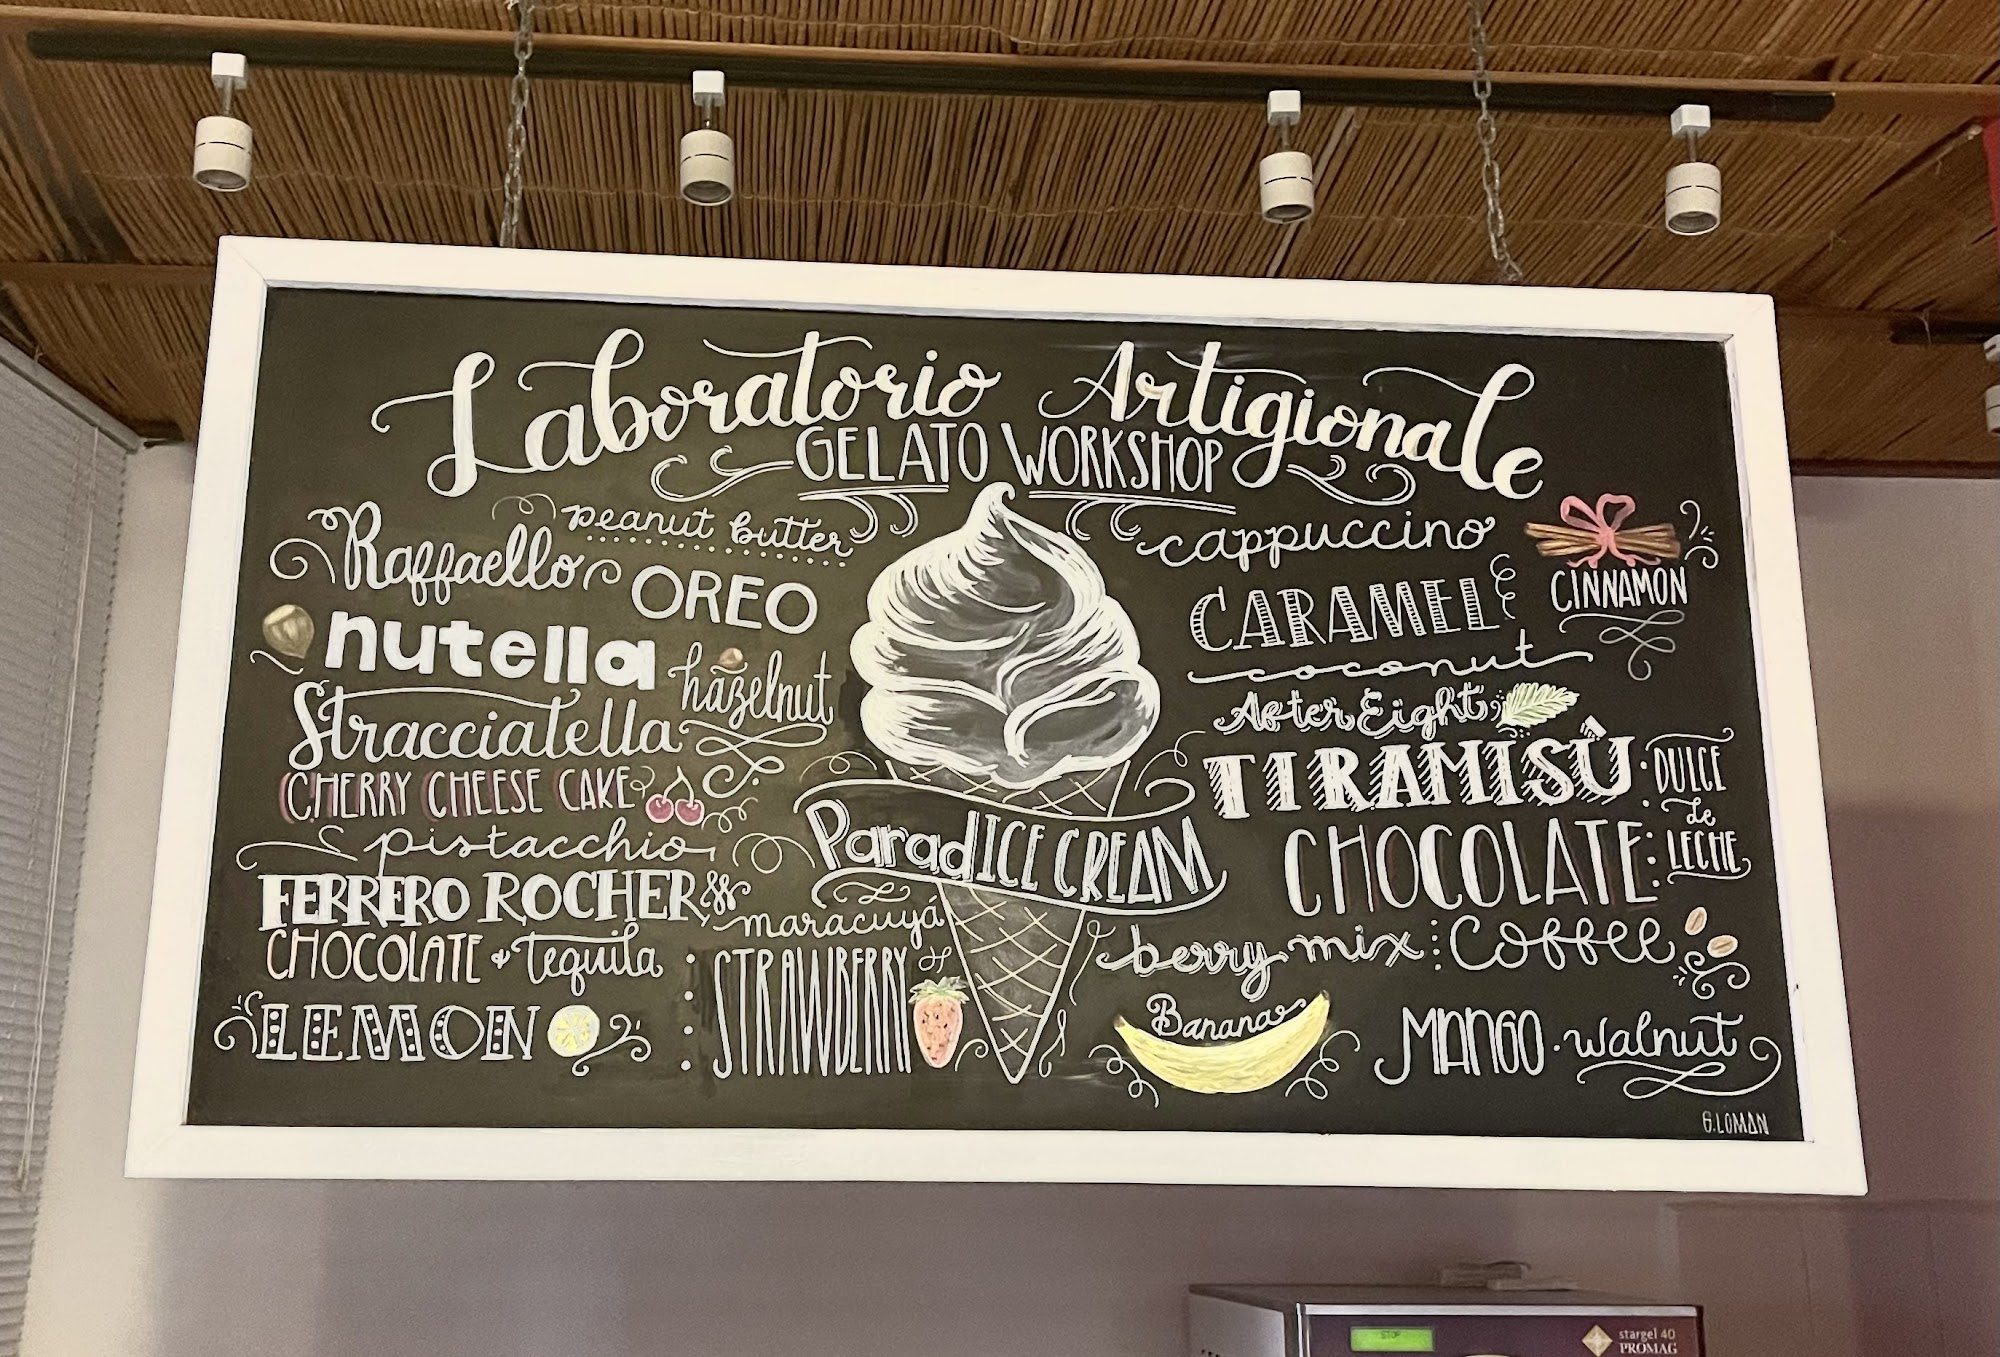 Laboratorio Artigionale
GELATO WORKSHOP
peanut butter
Raffaello
OREO
nutella
hazelnut
Stracciatella
CHERRY CHEESE CAKE
pistacchio
FERRERO ROCHER
maracuyá
CHOCOLATE + tequila
STRAWBERRY
LEMON
ParadICE CREAM
cappuccino
CINNAMON
CARAMEL
coconut
After Eight
TIRAMISÙ
DULCE
de
LECHE
CHOCOLATE
berry mix
Coffee
Banana
MANGO · walnut
G.LOMAN
STOP
stargel 40
PROMAG